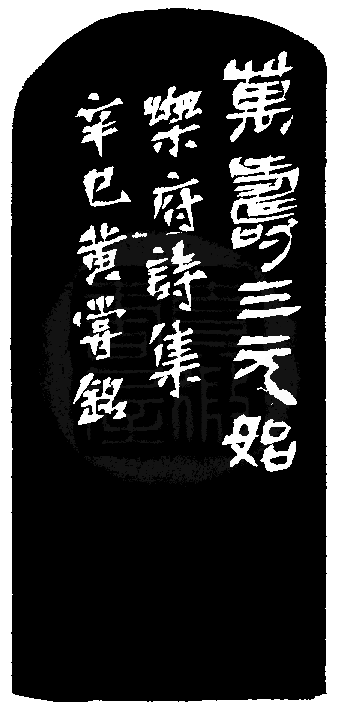 萬壽三元始
樂府詩集
辛巳黃嘗銘